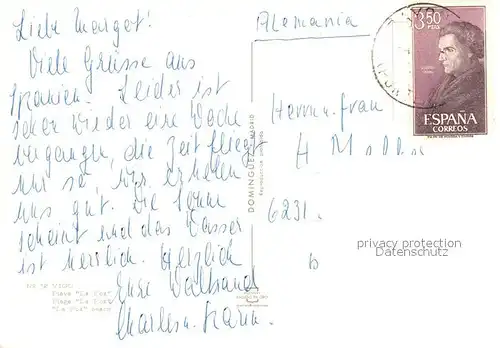 Liebe Margot!
Viele Grüsse aus
Spanien. Leider ist
schon wieder eine Woche
vergangen, die Zeit fliegt
nur so, wir erholen
uns gut. Die Sonne
scheint und das Wasser
ist herrlich. Herzlich
Eure Waltraud
Charles u. Karin.
Alemania
Herrn u. Frau
H M
6231.
b
3,50
PTAS
ESPAÑA
CORREOS
DOMINGUEZ - MADRID
VIGO
Playa "La
Plage "La
"La
privacy protection
VarmaPhil.com